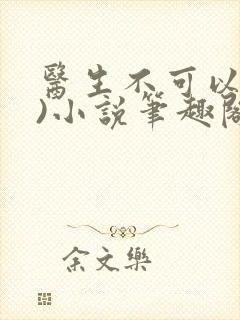 醫生不可以
)小説筆趣閣
余文樂